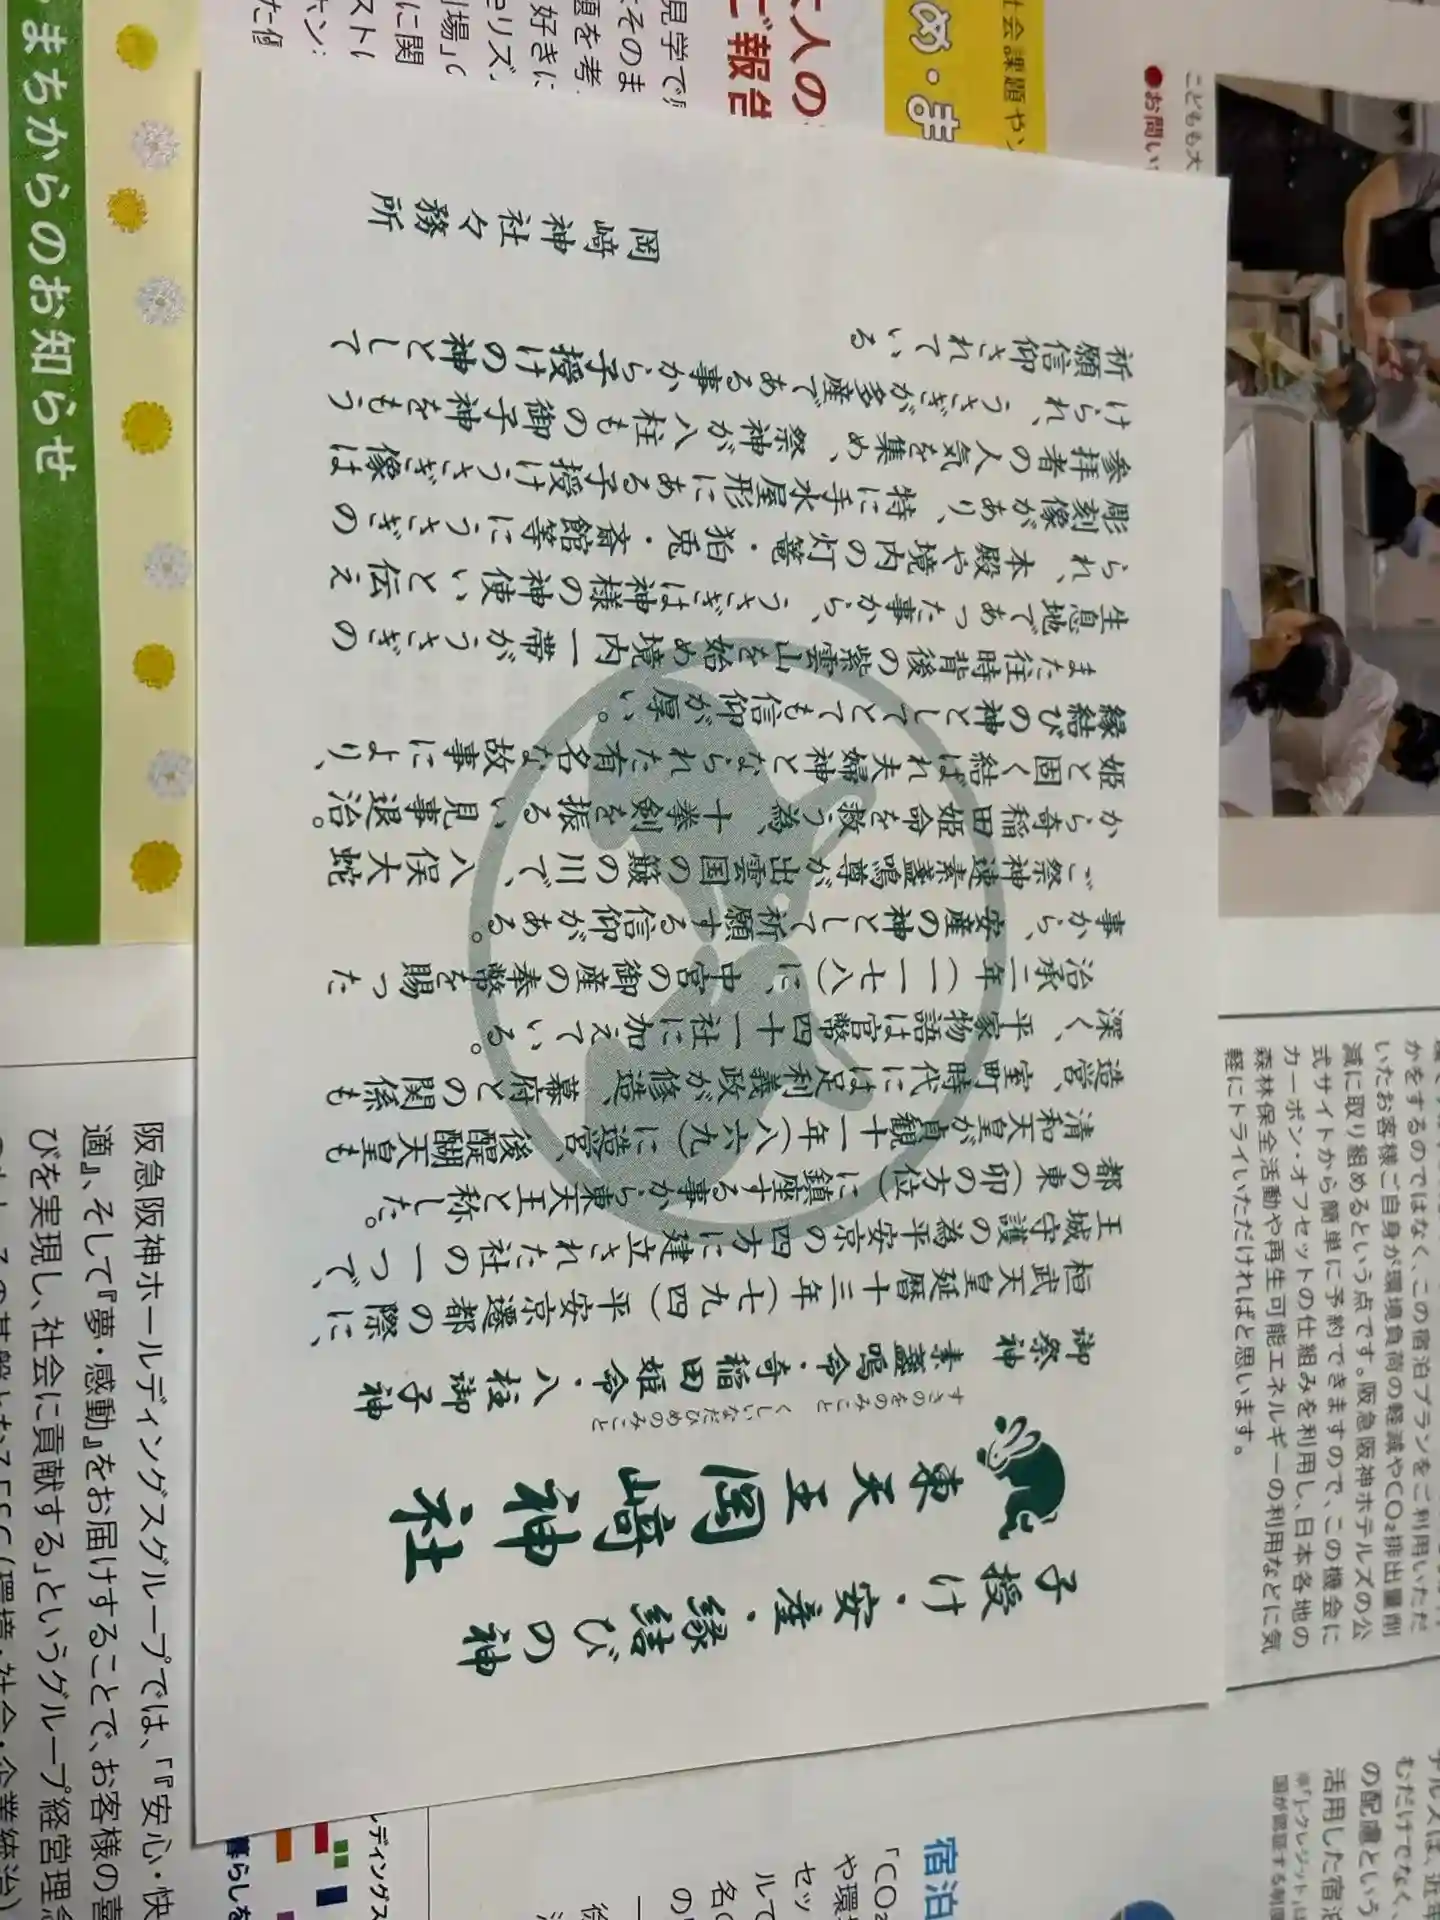 子授け・安産・縁結びの神
東天王 岡﨑神社
すさのをのみこと くしいなだひめのみこと
御祭神 素盞嗚命・奇稲田姫命・八柱御子神
桓武天皇延暦十三年(七九四)平安京遷都の際に、
王城守護の為平安京の四方に建立された社の一つで、
都の東(卯の方位)に鎮座する事から東天王と称した。
清和天皇が貞観十一年(八六九)に造営、後醍醐天皇も
造営、室町時代には足利義政が修造、幕府との関係も
深く、平家物語は官幣四十一社に加えている。
治承二年(一一七八)に、中宮の御産の奉幣を賜った
事から、安産の神として祈願する信仰がある。
ご祭神速素盞嗚尊が出雲国の簸の川で、八俣大蛇
から奇稲田姫命を救う為、十拳剣を振るい見事退治。
姫と固く結ばれ夫婦神となられた有名な故事により、
縁結びの神としてとても信仰が厚い。
また往時背後の紫雲山を始め境内一帯がうさぎの
生息地であった事から、うさぎは神様の神使いと伝え
られ、本殿や境内の灯篭・狛兎・斎館等にうさぎの
彫刻像があり、特に手水屋形にある子授けうさぎ像は
参拝者の人気を集め、祭神が八柱もの御子神をもう
けられ、うさぎが多産である事から子授けの神として
祈願信仰されている
岡﨑神社々務所
まちからのお知らせ
ご報告
め・ま
社会課題や
こどもも大
●お問い
かをするのではなく、この宿泊プランをご利用いただ
いたお客様ご自身が環境負荷の軽減やCO₂排出量削
減に取り組めるという点です。阪急阪神ホテルズの公
式サイトから簡単に予約できますので、この機会に
カーボン・オフセットの仕組みを利用し、日本各地の
森林保全活動や再生可能エネルギーの利用などに気
軽にトライいただければと思います。
阪急阪神ホールディングスグループでは、「『安心・快
適』、そして『夢・感動』をお届けすることで、お客様の喜
びを実現し、社会に貢献する」というグループ経営理念
宿泊
「CO₂
や環境
の配慮という
活用した宿泊